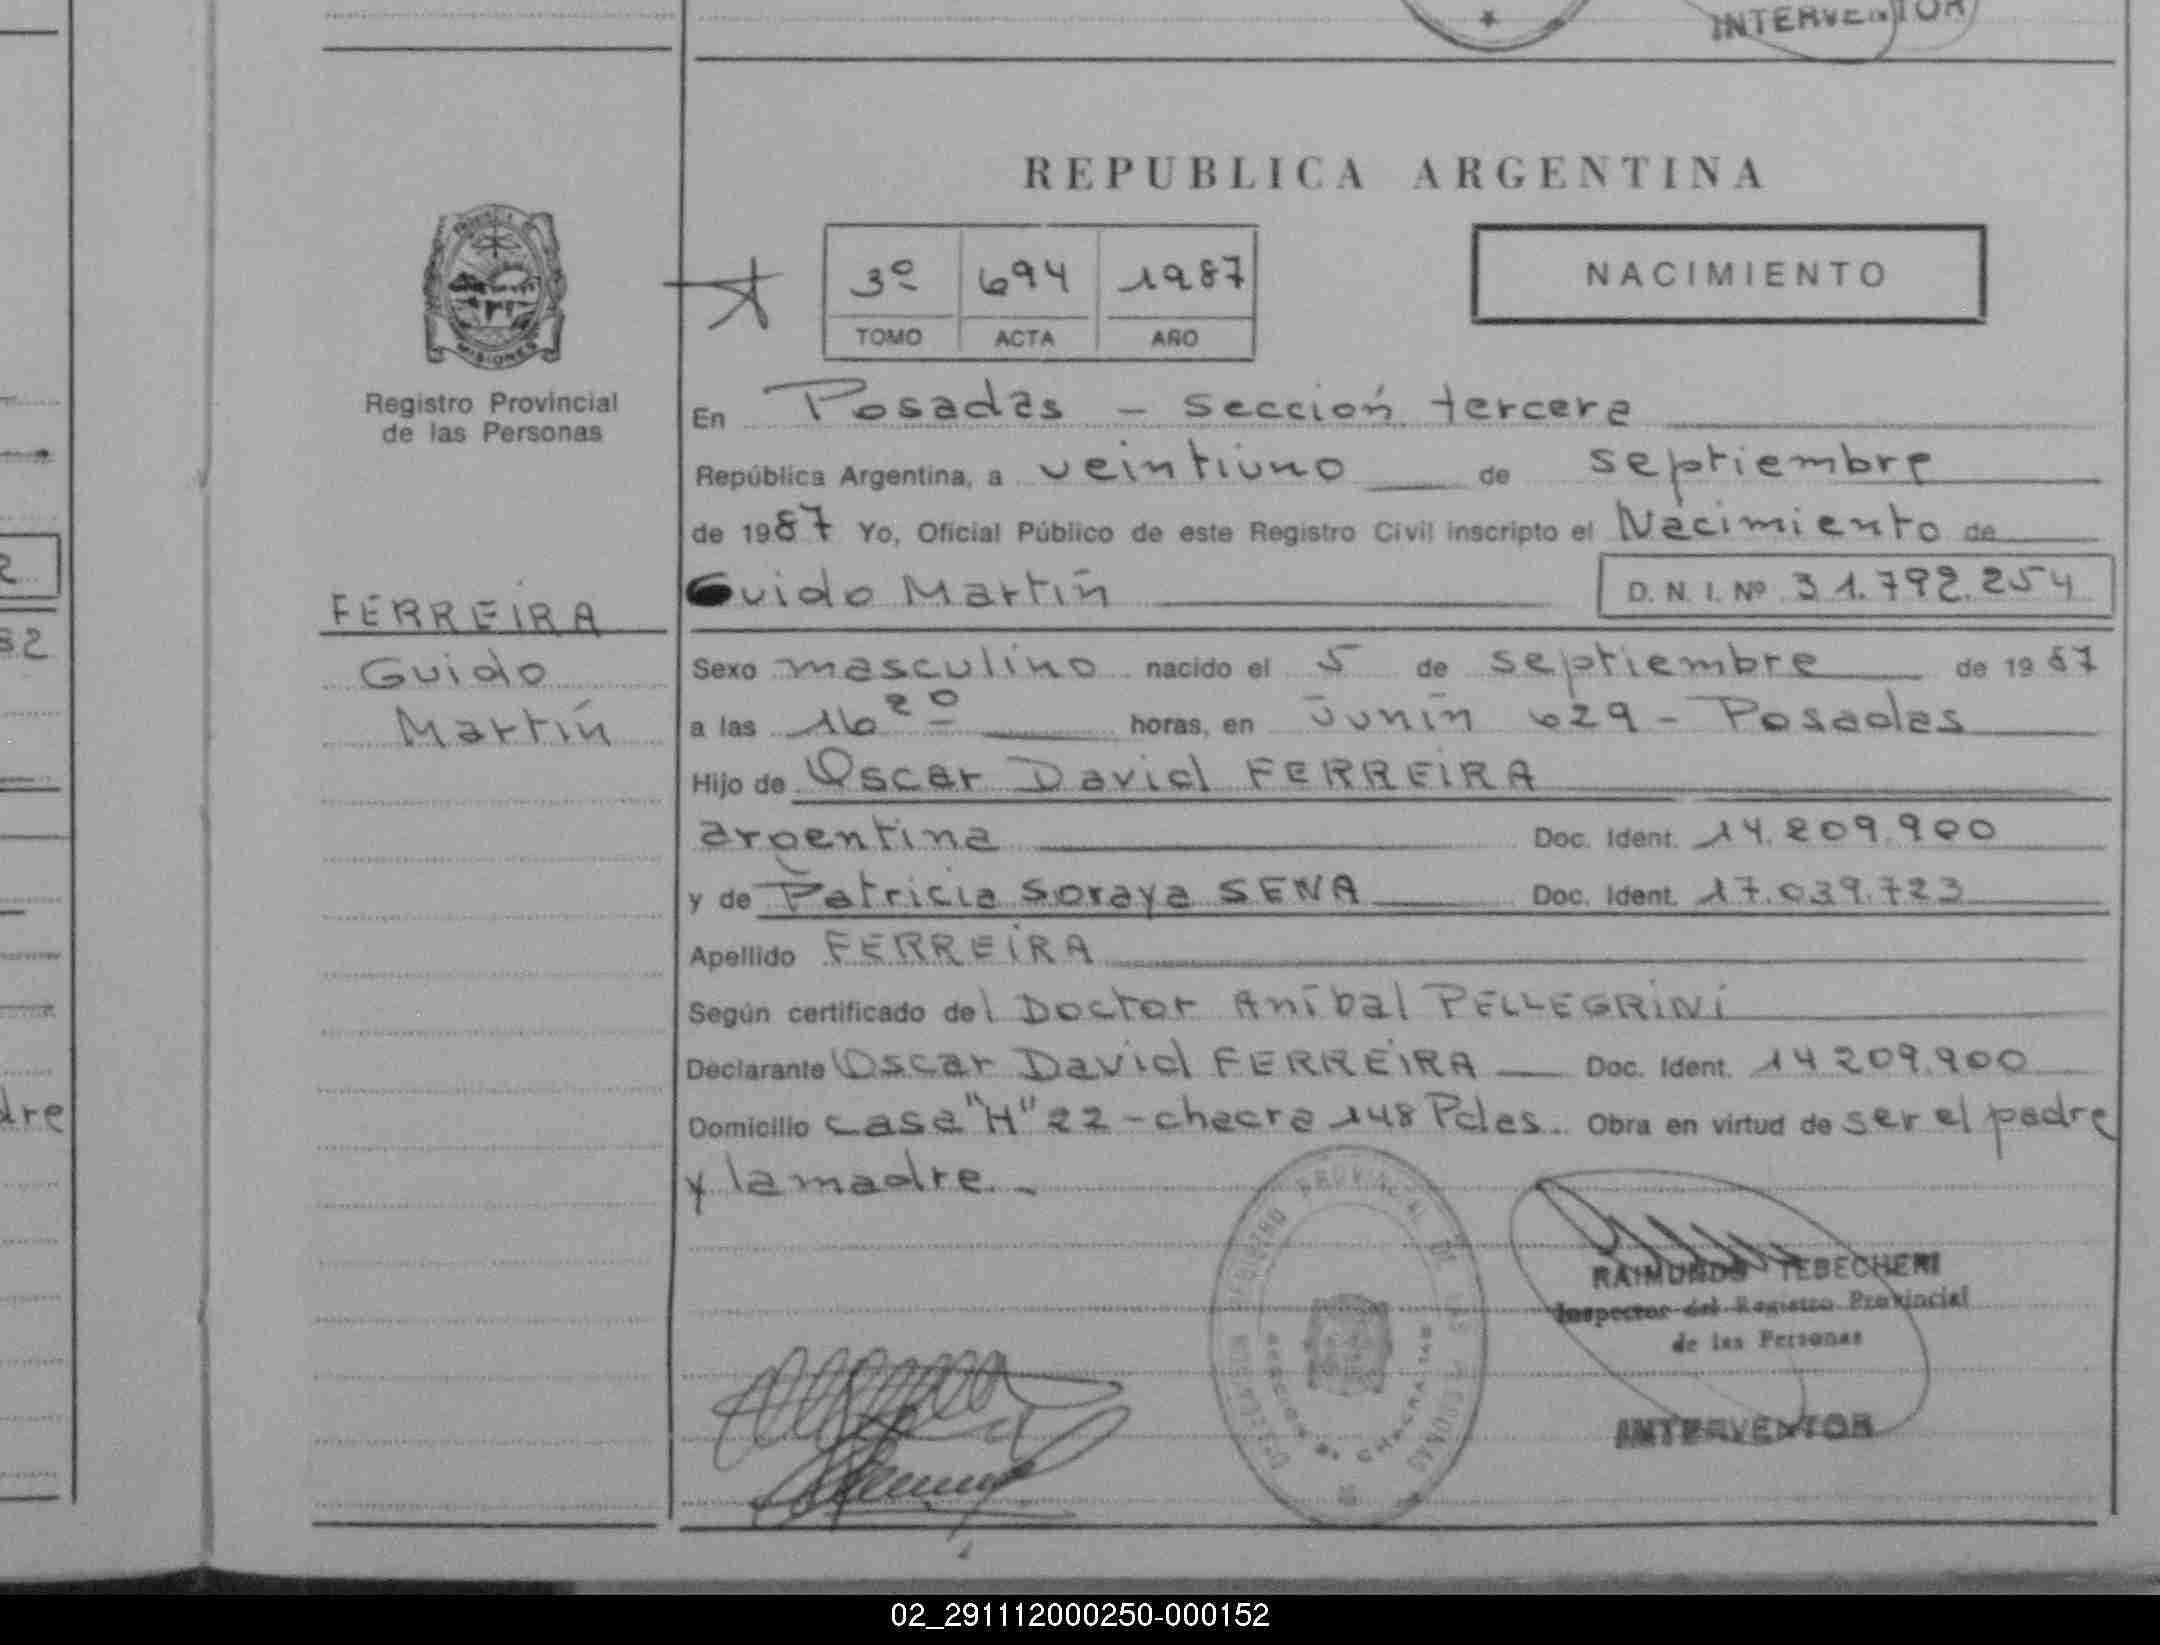 INTERVENTOR
REPUBLICA ARGENTINA
MISIONES
Registro Provincial
de las Personas
3º 694 1987
TOMO ACTA AÑO
NACIMIENTO
En Posadas - Sección tercera
República Argentina, a veintiuno de septiembre
de 1987 Yo, Oficial Público de este Registro Civil inscripto el Nacimiento de
Guido Martín D. N. I. Nº 31.792.254
FERREIRA
Guido
Martín
Sexo masculino nacido el 5 de septiembre de 1987
a las 16 20 horas, en Junín 629 - Posadas
Hijo de Oscar David FERREIRA
argentina Doc. Ident. 14.209.900
y de Patricia Soraya SENA Doc. Ident. 17.039.723
Apellido FERREIRA
Según certificado del Doctor Aníbal PELLEGRINI
Declarante Oscar David FERREIRA Doc. Ident. 14209.900
Domicilio casa "H" 22 - chacra 148 Pdas. Obra en virtud de ser el padre
y la madre. -
REGISTRO PROVINCIAL DE LAS PERSONAS
CHACRA 148
RAIMUNDO TEBECHERI
Inspector del Registro Provincial
de las Personas
INTERVENTOR
32
dre
02_291112000250-000152